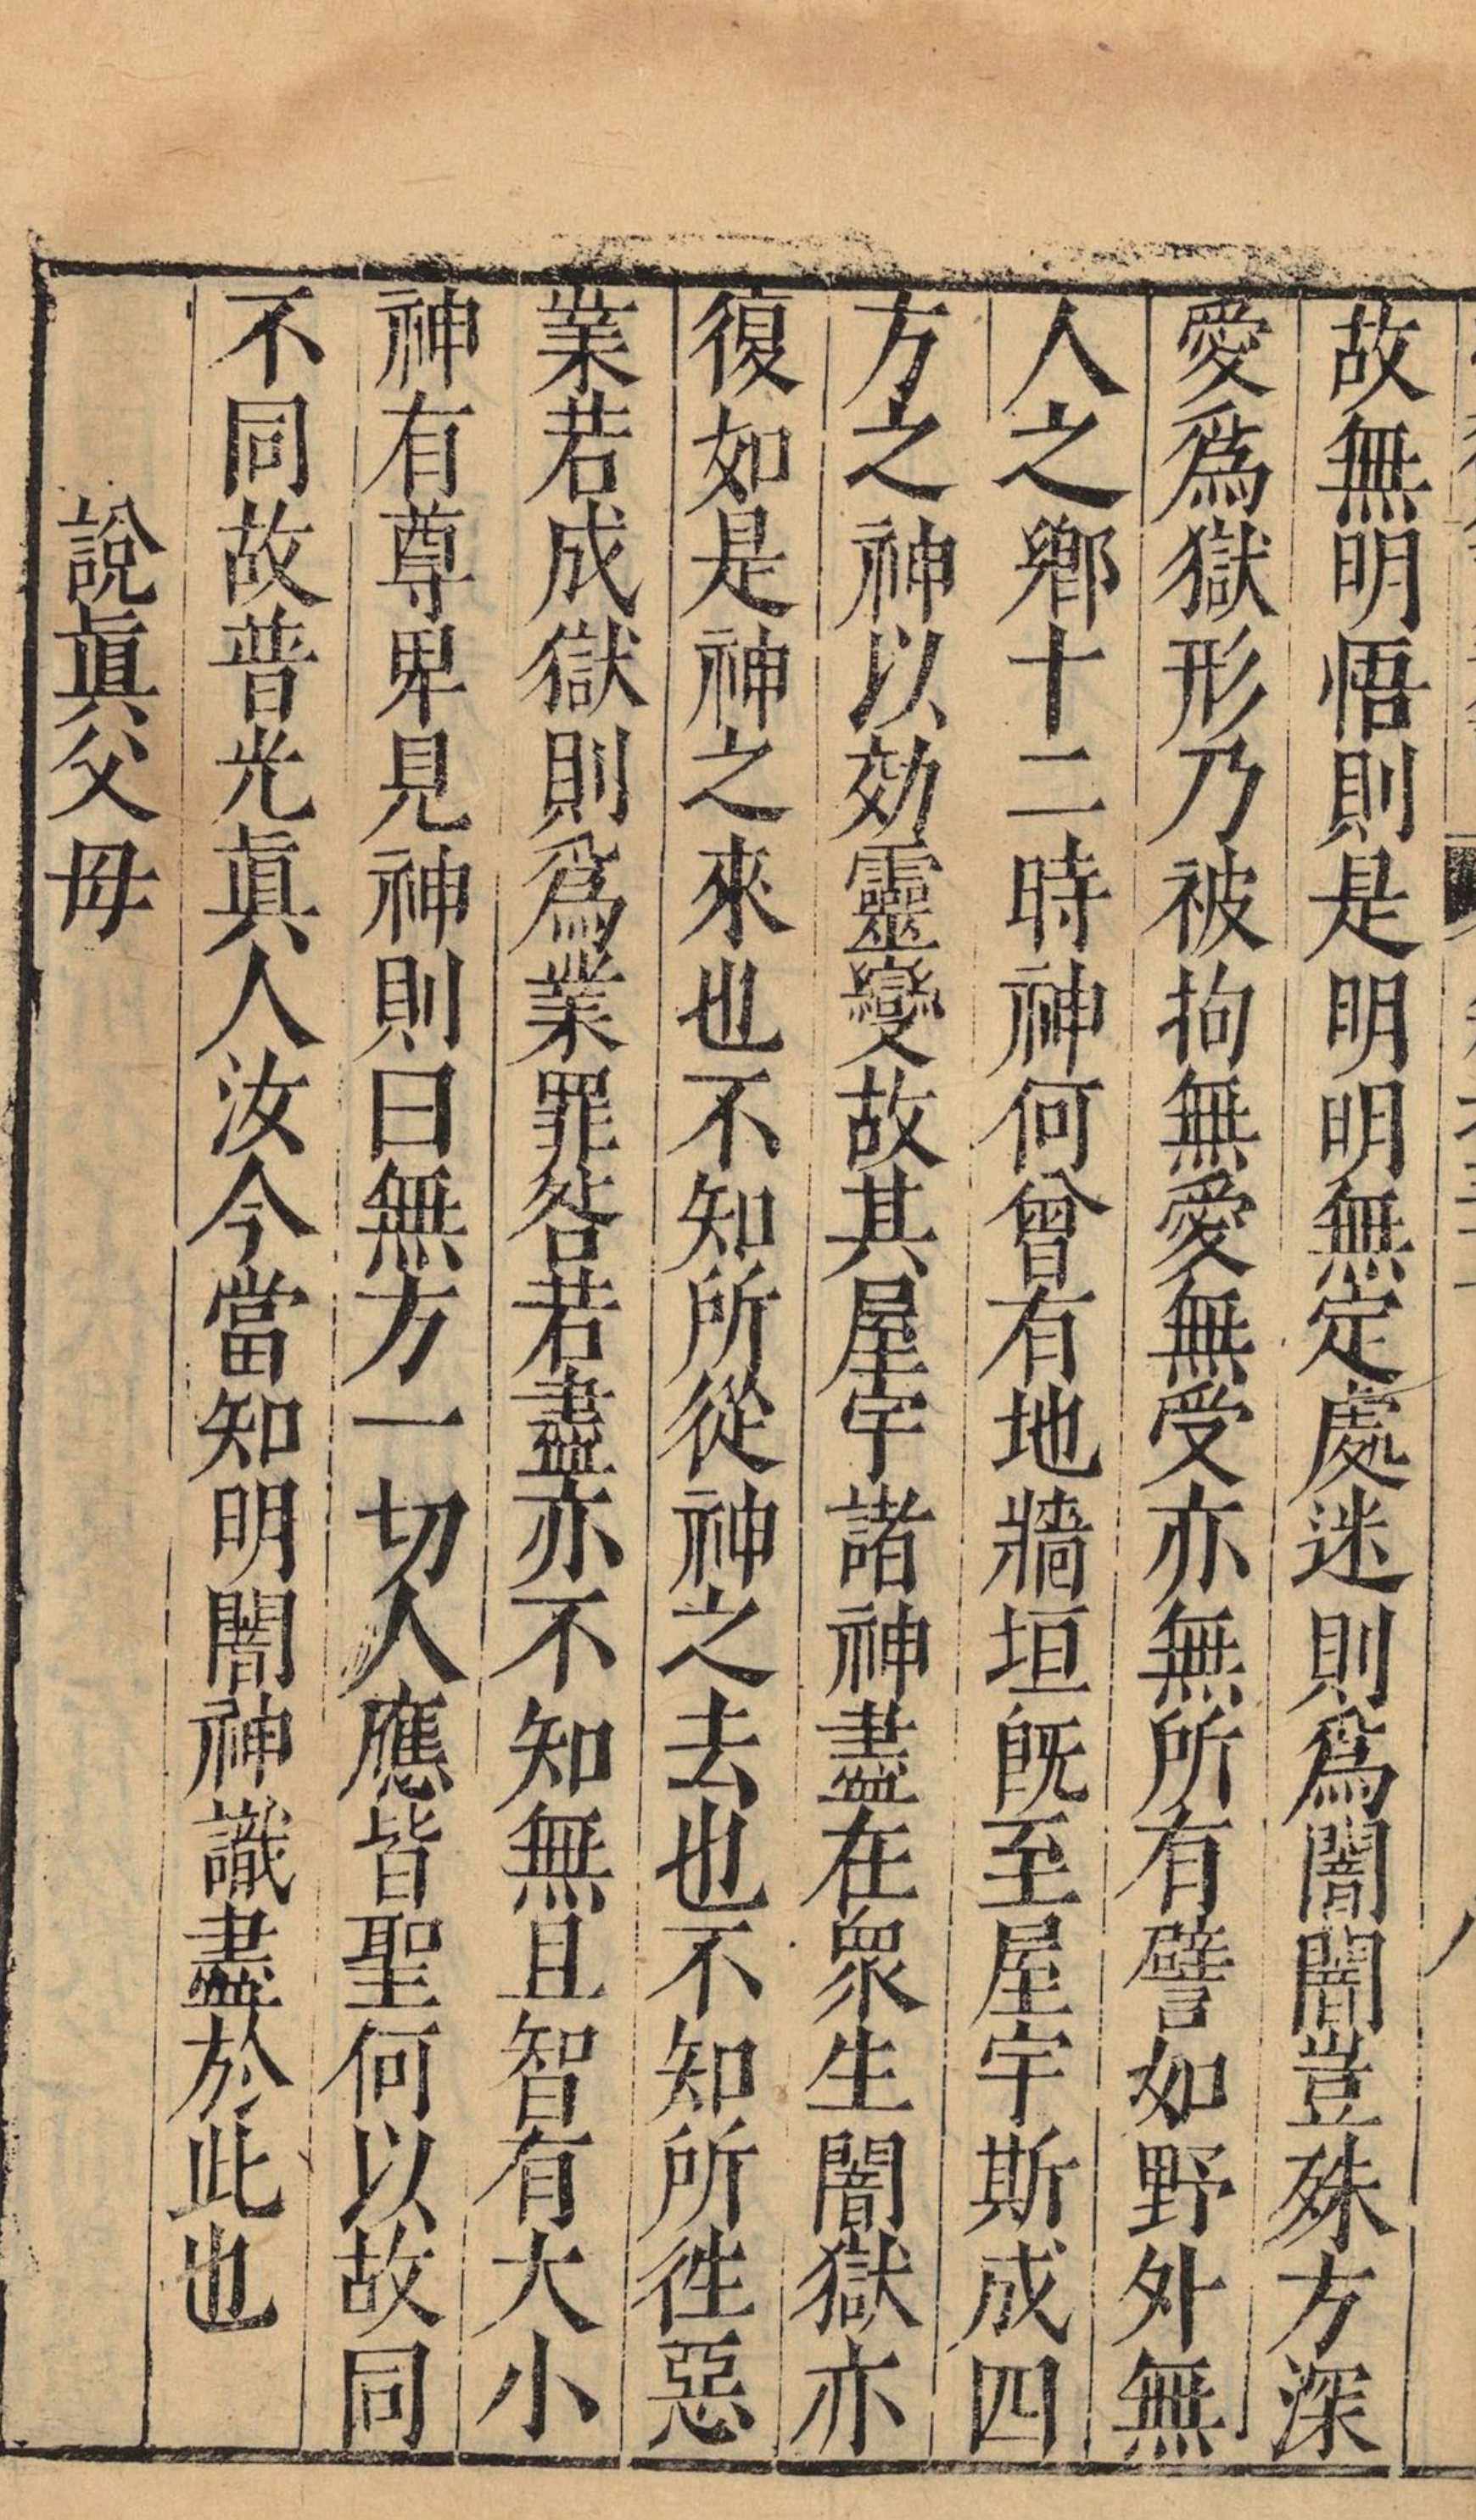 故無明悟則是明明無定處迷則爲闇闇豈殊方深
愛爲獄形乃被拘無愛無受亦無所有譬如野外無
人之鄉十二時神何曾有地牆垣旣至屋宇斯成四
方之神以効靈變故其屋宇諸神盡在衆生闇獄亦
復如是神之來也不知所從神之去也不知所徃惡
業若成獄則爲業罪咎若盡亦不知無且智有大小
神有尊卑見神則曰無方一切人應皆聖何以故同
不同故普光眞人汝今當知明闇神識盡於此也
說眞父母